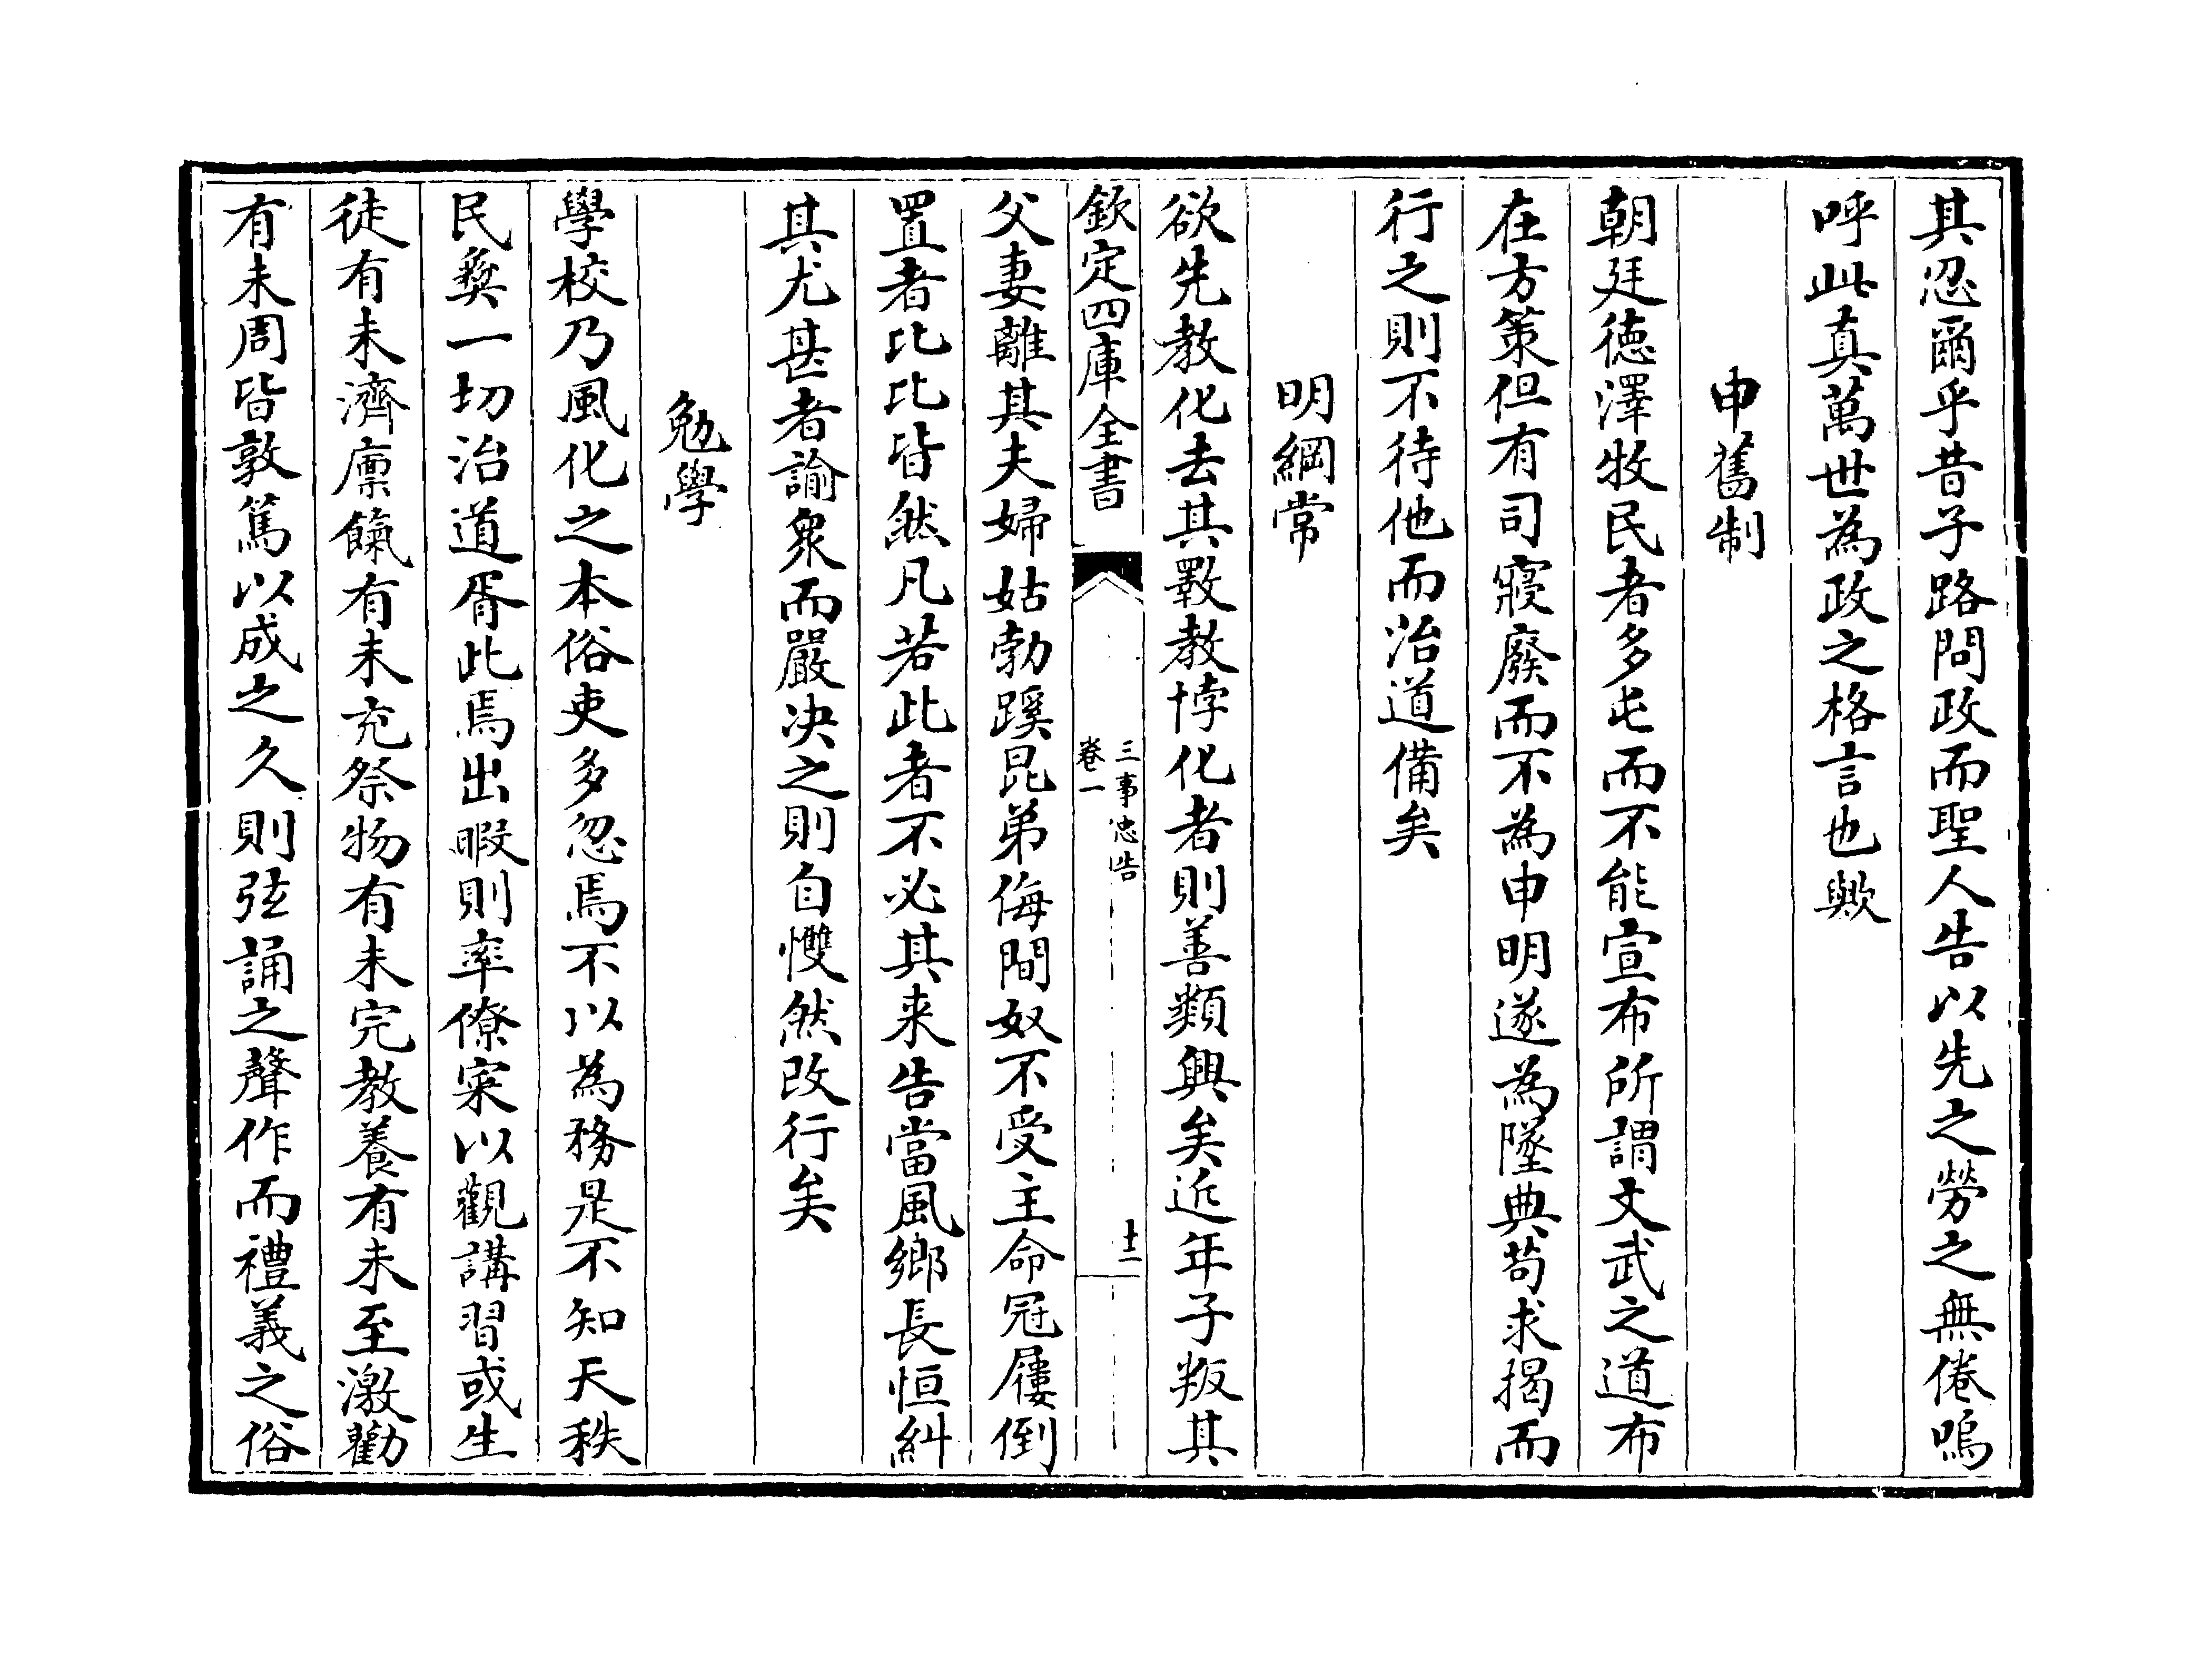 其忍爾乎昔子路問政而聖人告以先之勞之無倦嗚
呼此真萬世為政之格言也歟
申舊制
朝廷徳澤牧民者多屯而不能宣布所謂文武之道布
在方策但有司寢廢而不為申明遂為墜典苟求揭而
行之則不待他而治道備矣
明綱常
欲先教化去其斁教悖化者則善類興矣近年子叛其
欽定四庫全書
三事忠告
卷一
十二
父妻離其夫婦姑勃蹊昆弟侮鬩奴不受主命冠屨倒
置者比比皆然凡若此者不必其来告當風鄉長恒糾
其尤甚者諭衆而嚴决之則自戄然改行矣
勉學
學校乃風化之本俗吏多忽焉不以為務是不知天秩
民彝一切治道胥此焉出暇則率僚寀以觀講習或生
徒有未濟廩餼有未充祭物有未完教養有未至激勸
有未周皆敦篤以成之久則弦誦之聲作而禮義之俗